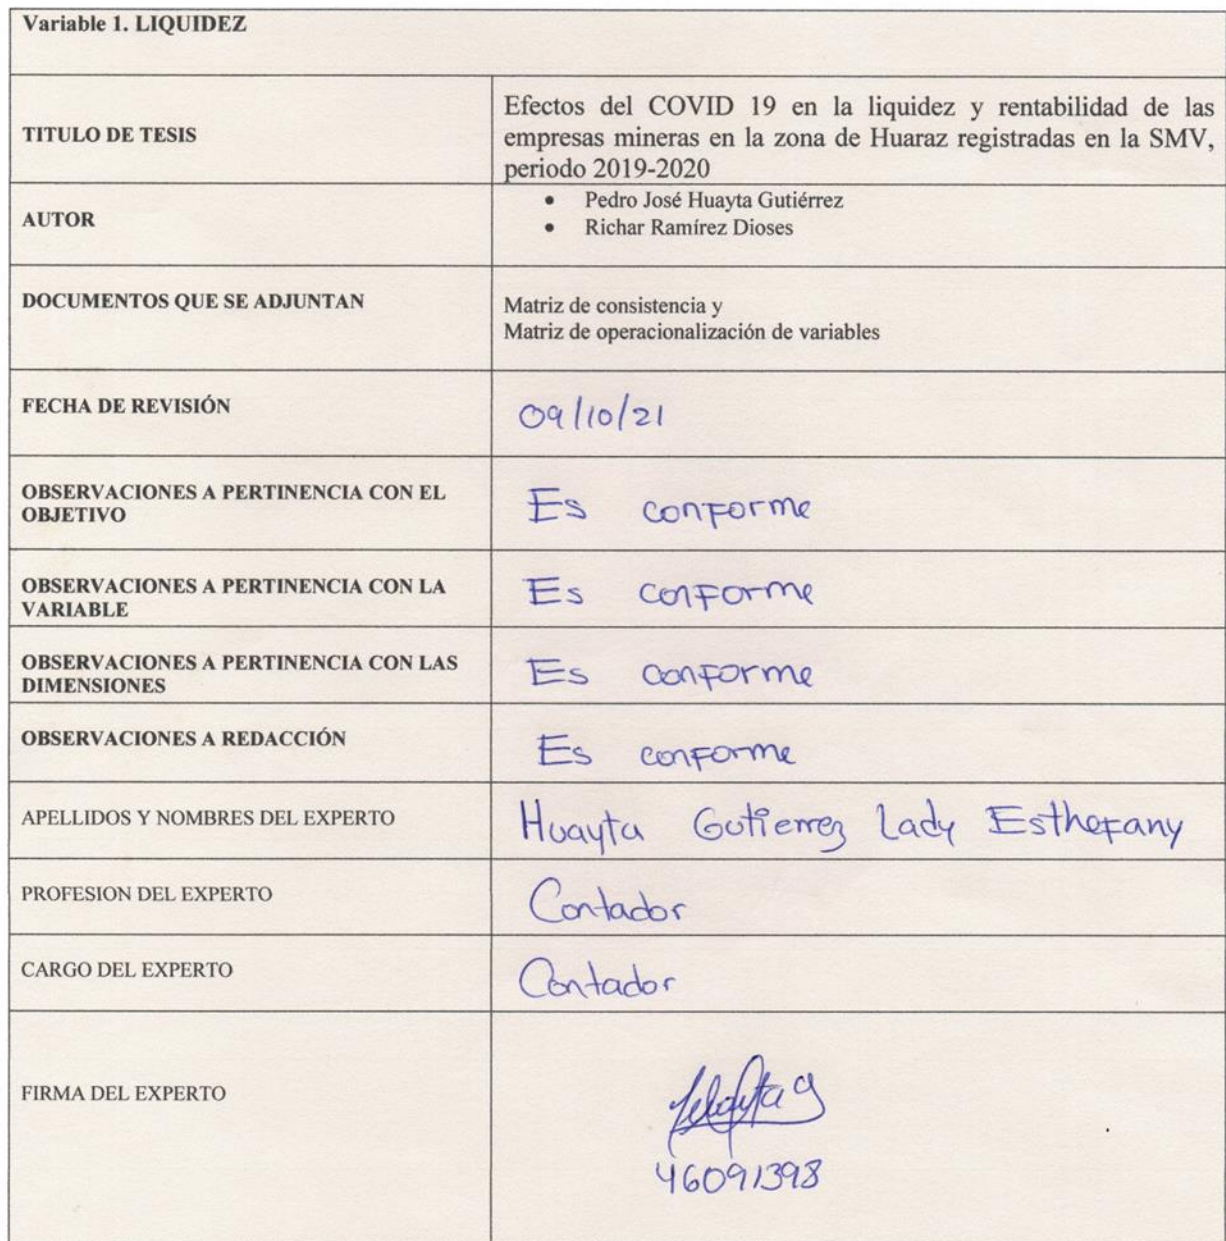 Variable 1. LIQUIDEZ
TITULO DE TESIS
Efectos del COVID 19 en la liquidez y rentabilidad de las
empresas mineras en la zona de Huaraz registradas en la SMV,
periodo 2019-2020
AUTOR
• Pedro José Huayta Gutiérrez
• Richar Ramírez Dioses
DOCUMENTOS QUE SE ADJUNTAN
Matriz de consistencia y
Matriz de operacionalización de variables
FECHA DE REVISIÓN
09/10/21
OBSERVACIONES A PERTINENCIA CON EL
OBJETIVO
Es conforme
OBSERVACIONES A PERTINENCIA CON LA
VARIABLE
Es conforme
OBSERVACIONES A PERTINENCIA CON LAS
DIMENSIONES
Es conforme
OBSERVACIONES A REDACCIÓN
Es conforme
APELLIDOS Y NOMBRES DEL EXPERTO
Huayta Gutierrez Lady Esthefany
PROFESION DEL EXPERTO
Contador
CARGO DEL EXPERTO
Contador
FIRMA DEL EXPERTO
46091398